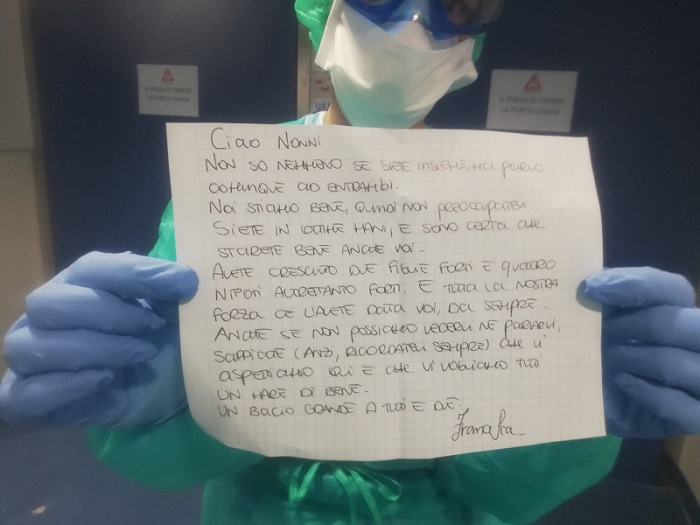 SI PREGA DI TENERE
LA PORTA CHIUSA
SI PREGA DI TENERE
LA PORTA CHIUSA
Ciao Nonni
NON SO NEMMENO SE SIETE INSIEME, MA PARLO
COMUNQUE AD ENTRAMBI.
NOI STIAMO BENE, QUINDI NON PREOCCUPATEVI
SIETE IN OTTIME MANI, E SONO CERTA CHE
STARETE BENE ANCHE VOI.
AVETE CRESCIUTO DUE FIGLIE FORTI E QUATTRO
NIPOTI ALTRETTANTO FORTI. E TUTTA LA NOSTRA
FORZA CE L'AVETE DATA VOI, DA SEMPRE.
ANCHE SE NON POSSIAMO VEDERVI NÉ PARLARVI,
SAPPIATE (ANZI, RICORDATEVI SEMPRE) CHE VI
ASPETTIAMO QUI E CHE VI VOGLIAMO TUTTI
UN MARE DI BENE.
UN BACIO GRANDE A TUTTI E DUE.